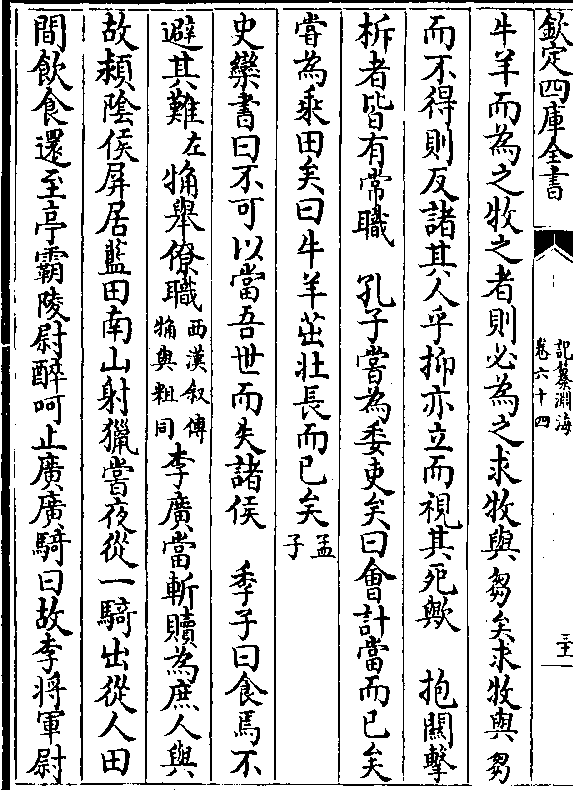 欽定四庫全書
記纂淵海
卷六十四
三十一
牛羊而為之牧之者則必為之求牧與芻矣求牧與芻
而不得則反諸其人乎抑亦立而視其死歟　抱關擊
柝者皆有常職　孔子嘗為委吏矣曰會計當而已矣
嘗為乘田矣曰牛羊茁壯長而已矣孟子
史欒書曰不可以當吾世而失諸侯　季子曰食焉不
避其難左觕舉僚職西漢叙傳觕與粗同李廣當斬贖為庶人與
故頴隂侯屏居藍田南山射獵嘗夜從一騎出從人田
間飲食還至亭霸陵尉醉呵止廣廣騎曰故李將軍尉